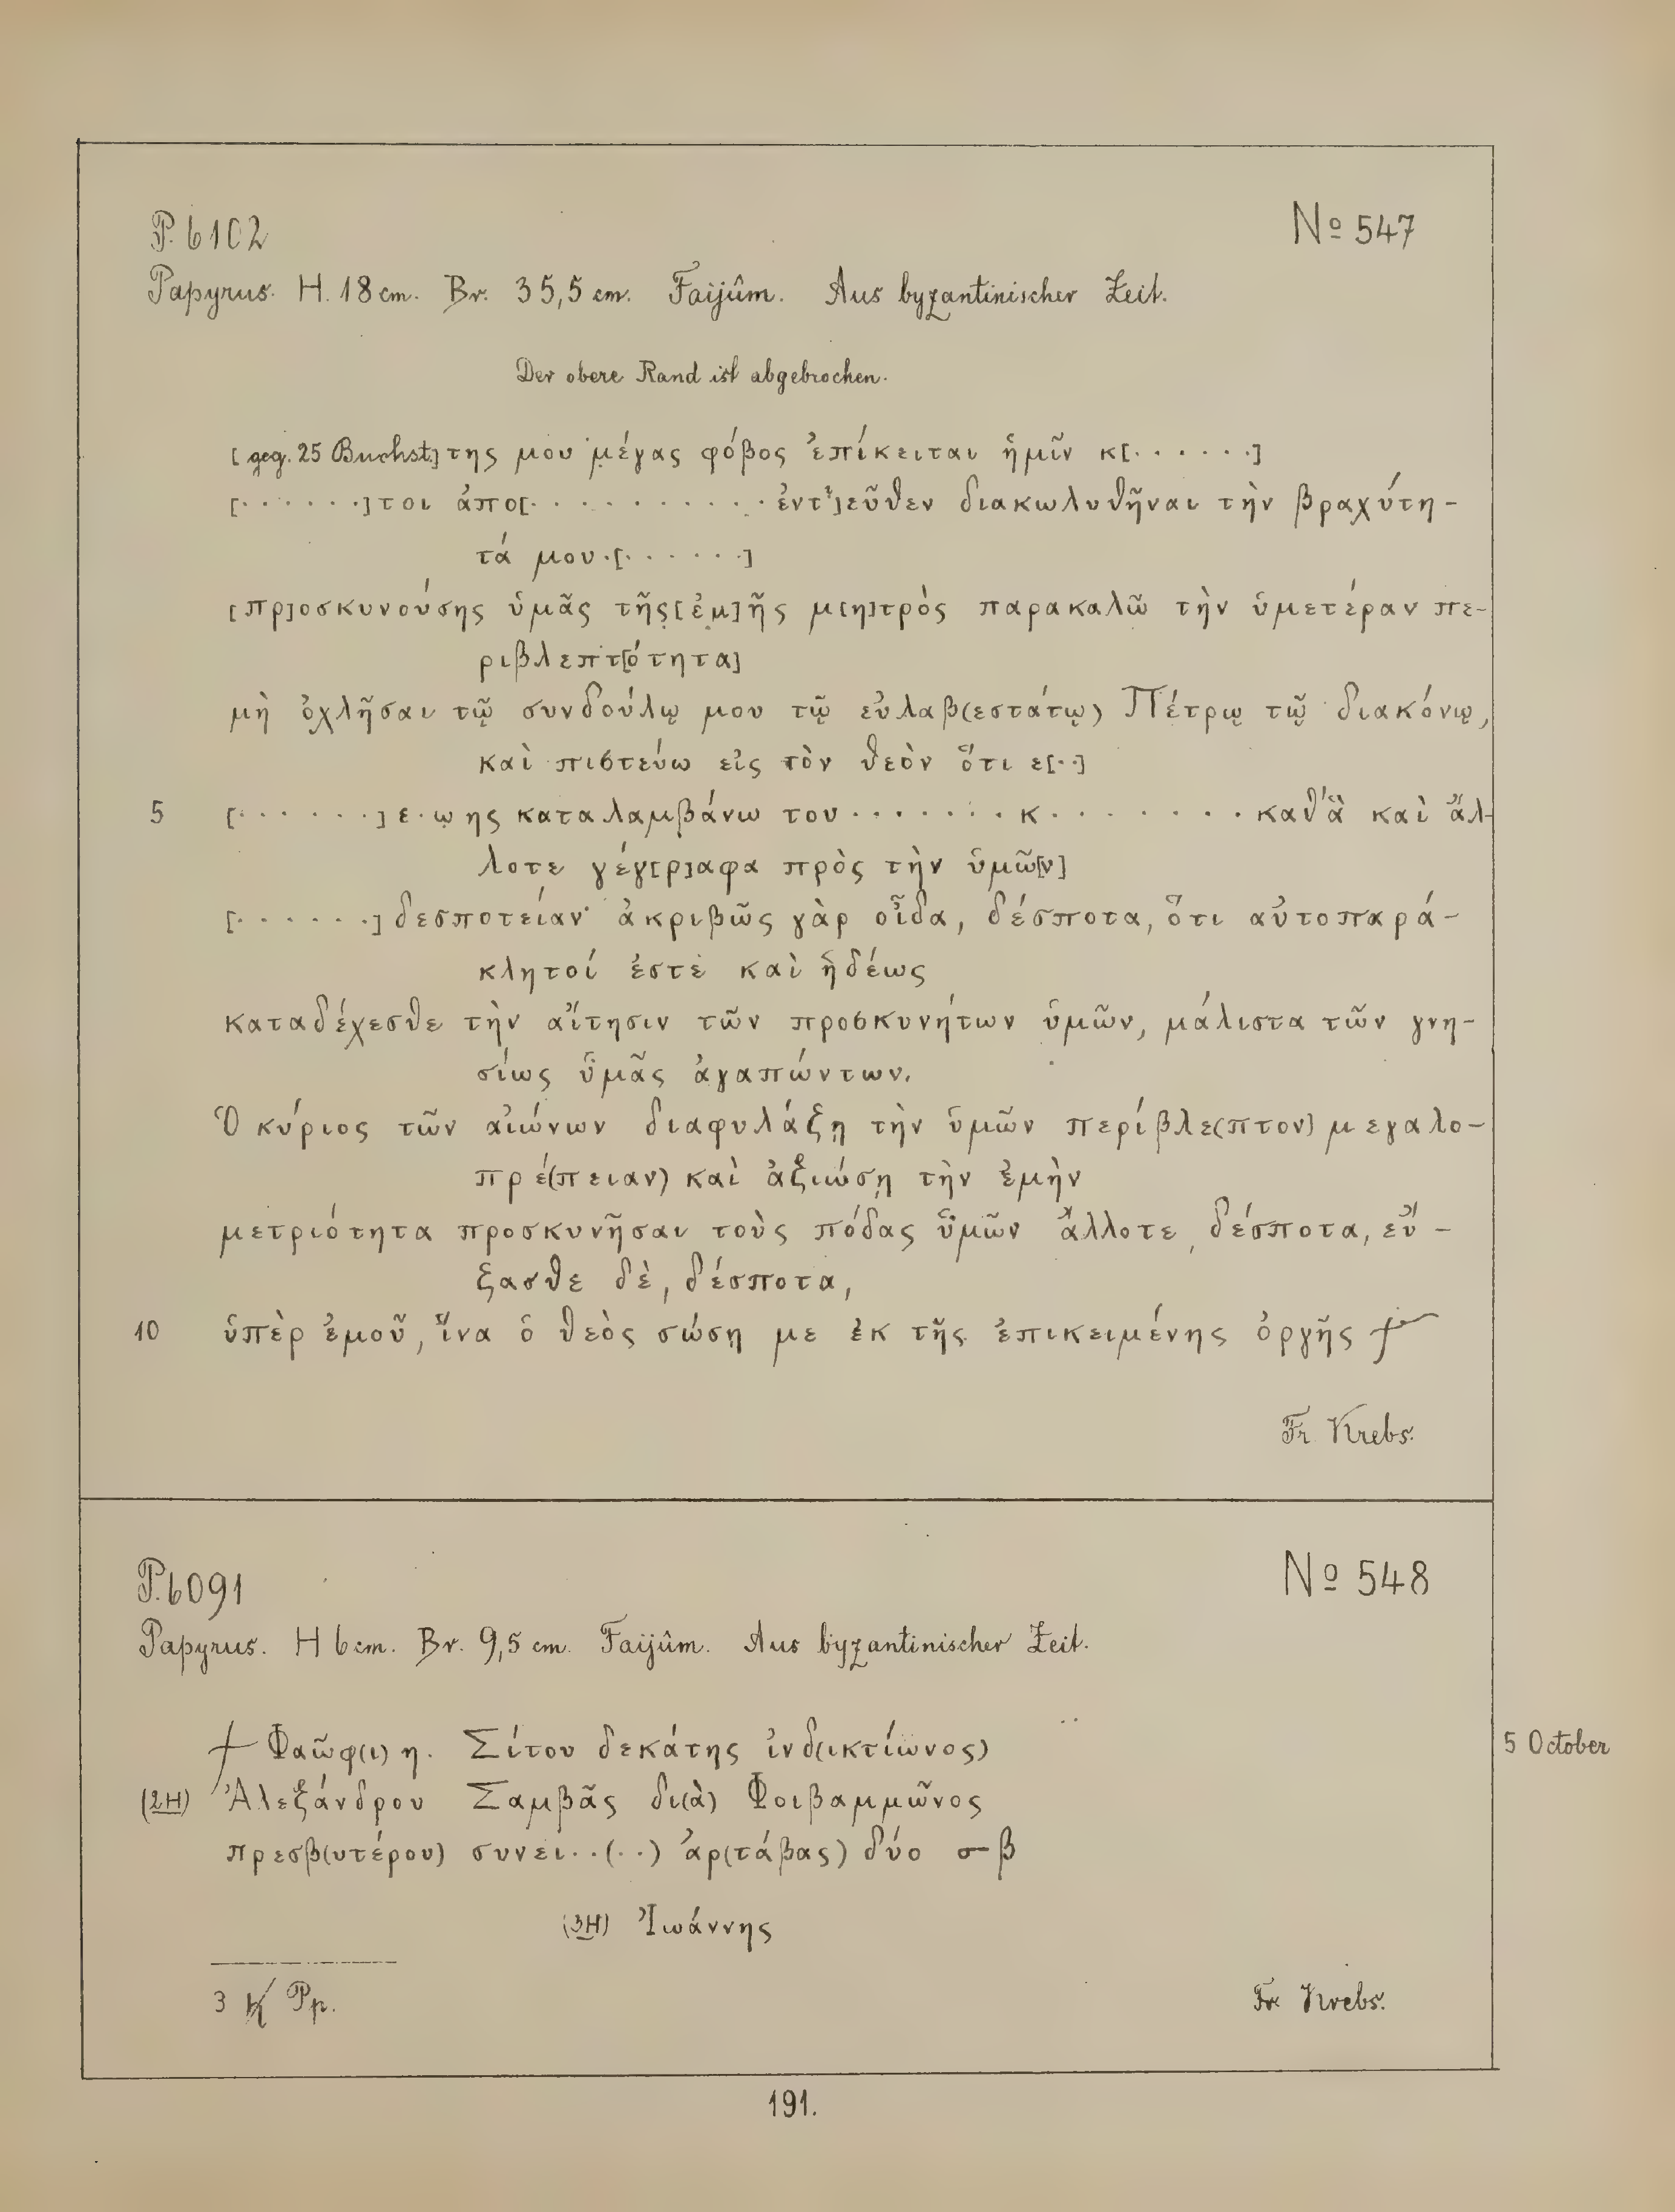 P. 6102
No 547
Papyrus. H. 18 cm. Br. 35,5 cm. Faijûm. Aus byzantinischer Zeit.
Der obere Rand ist abgebrochen.
[geg. 25 Buchst.]της μου μέγας φόβος ἐπίκειται ἡμῖν κ[· · · · · ·]
[· · · · · ·]τοι ἀπο[· · · · · · · · · · · ἐντ]εῦθεν διακωλυθῆναι τὴν βραχύτη-
τά μου·[· · · · · ·]
[πρ]οσκυνούσης ὑμᾶς τῆς[ἐμ]ῆς μ[η]τρὸς παρακαλῶ τὴν ὑμετέραν πε-
ριβλεπτ[ότητα]
μὴ ὀχλῆσαι τῷ συνδούλῳ μου τῷ εὐλαβ(εστάτῳ) Πέτρῳ τῷ διακόνῳ,
καὶ πιστεύω εἰς τὸν θεὸν ὅτι ε[··]
5 [· · · · · ·]ε·ῳης καταλαμβάνω του · · · · · · · κ · · · · · · · · καθ'ἃ καὶ ἄλ-
λοτε γέγ[ρ]αφα πρὸς τὴν ὑμῶ[ν]
[· · · · · ·]δεσποτείαν· ἀκριβῶς γὰρ οἶδα, δέσποτα, ὅτι αὐτοπαρά-
κλητοί ἐστε καὶ ἡδέως
καταδέχεσθε τὴν αἴτησιν τῶν προσκυνήτων ὑμῶν, μάλιστα τῶν γνη-
σίως ὑμᾶς ἀγαπώντων.
Ὁ κύριος τῶν αἰώνων διαφυλάξῃ τὴν ὑμῶν περίβλε(πτον) μεγαλο-
πρέ(πειαν) καὶ ἀξιώσῃ τὴν ἐμὴν
μετριότητα προσκυνῆσαι τοὺς πόδας ὑμῶν ἄλλοτε, δέσποτα, εὔ-
ξασθε δὲ, δέσποτα,
10 ὑπὲρ ἐμοῦ, ἵνα ὁ θεὸς σώσῃ με ἐκ τῆς ἐπικειμένης ὀργῆς ⳨
Fr. Krebs.
P. 6091
No 548
Papyrus. H 6 cm. Br. 9,5 cm. Faijûm. Aus byzantinischer Zeit.
⳨ Φαῶφ(ι) η. Σίτου δεκάτης ἰνδ(ικτίωνος) 5 October
(2H) Ἀλεξάνδρου Σαμβᾶς δι(ὰ) Φοιβαμμῶνος
πρεσβ(υτέρου) συνει··(··) ἀρ(τάβας) δύο σ– β
(3H) Ἰωάννης
3 Pp.
Fr. Krebs.
191.